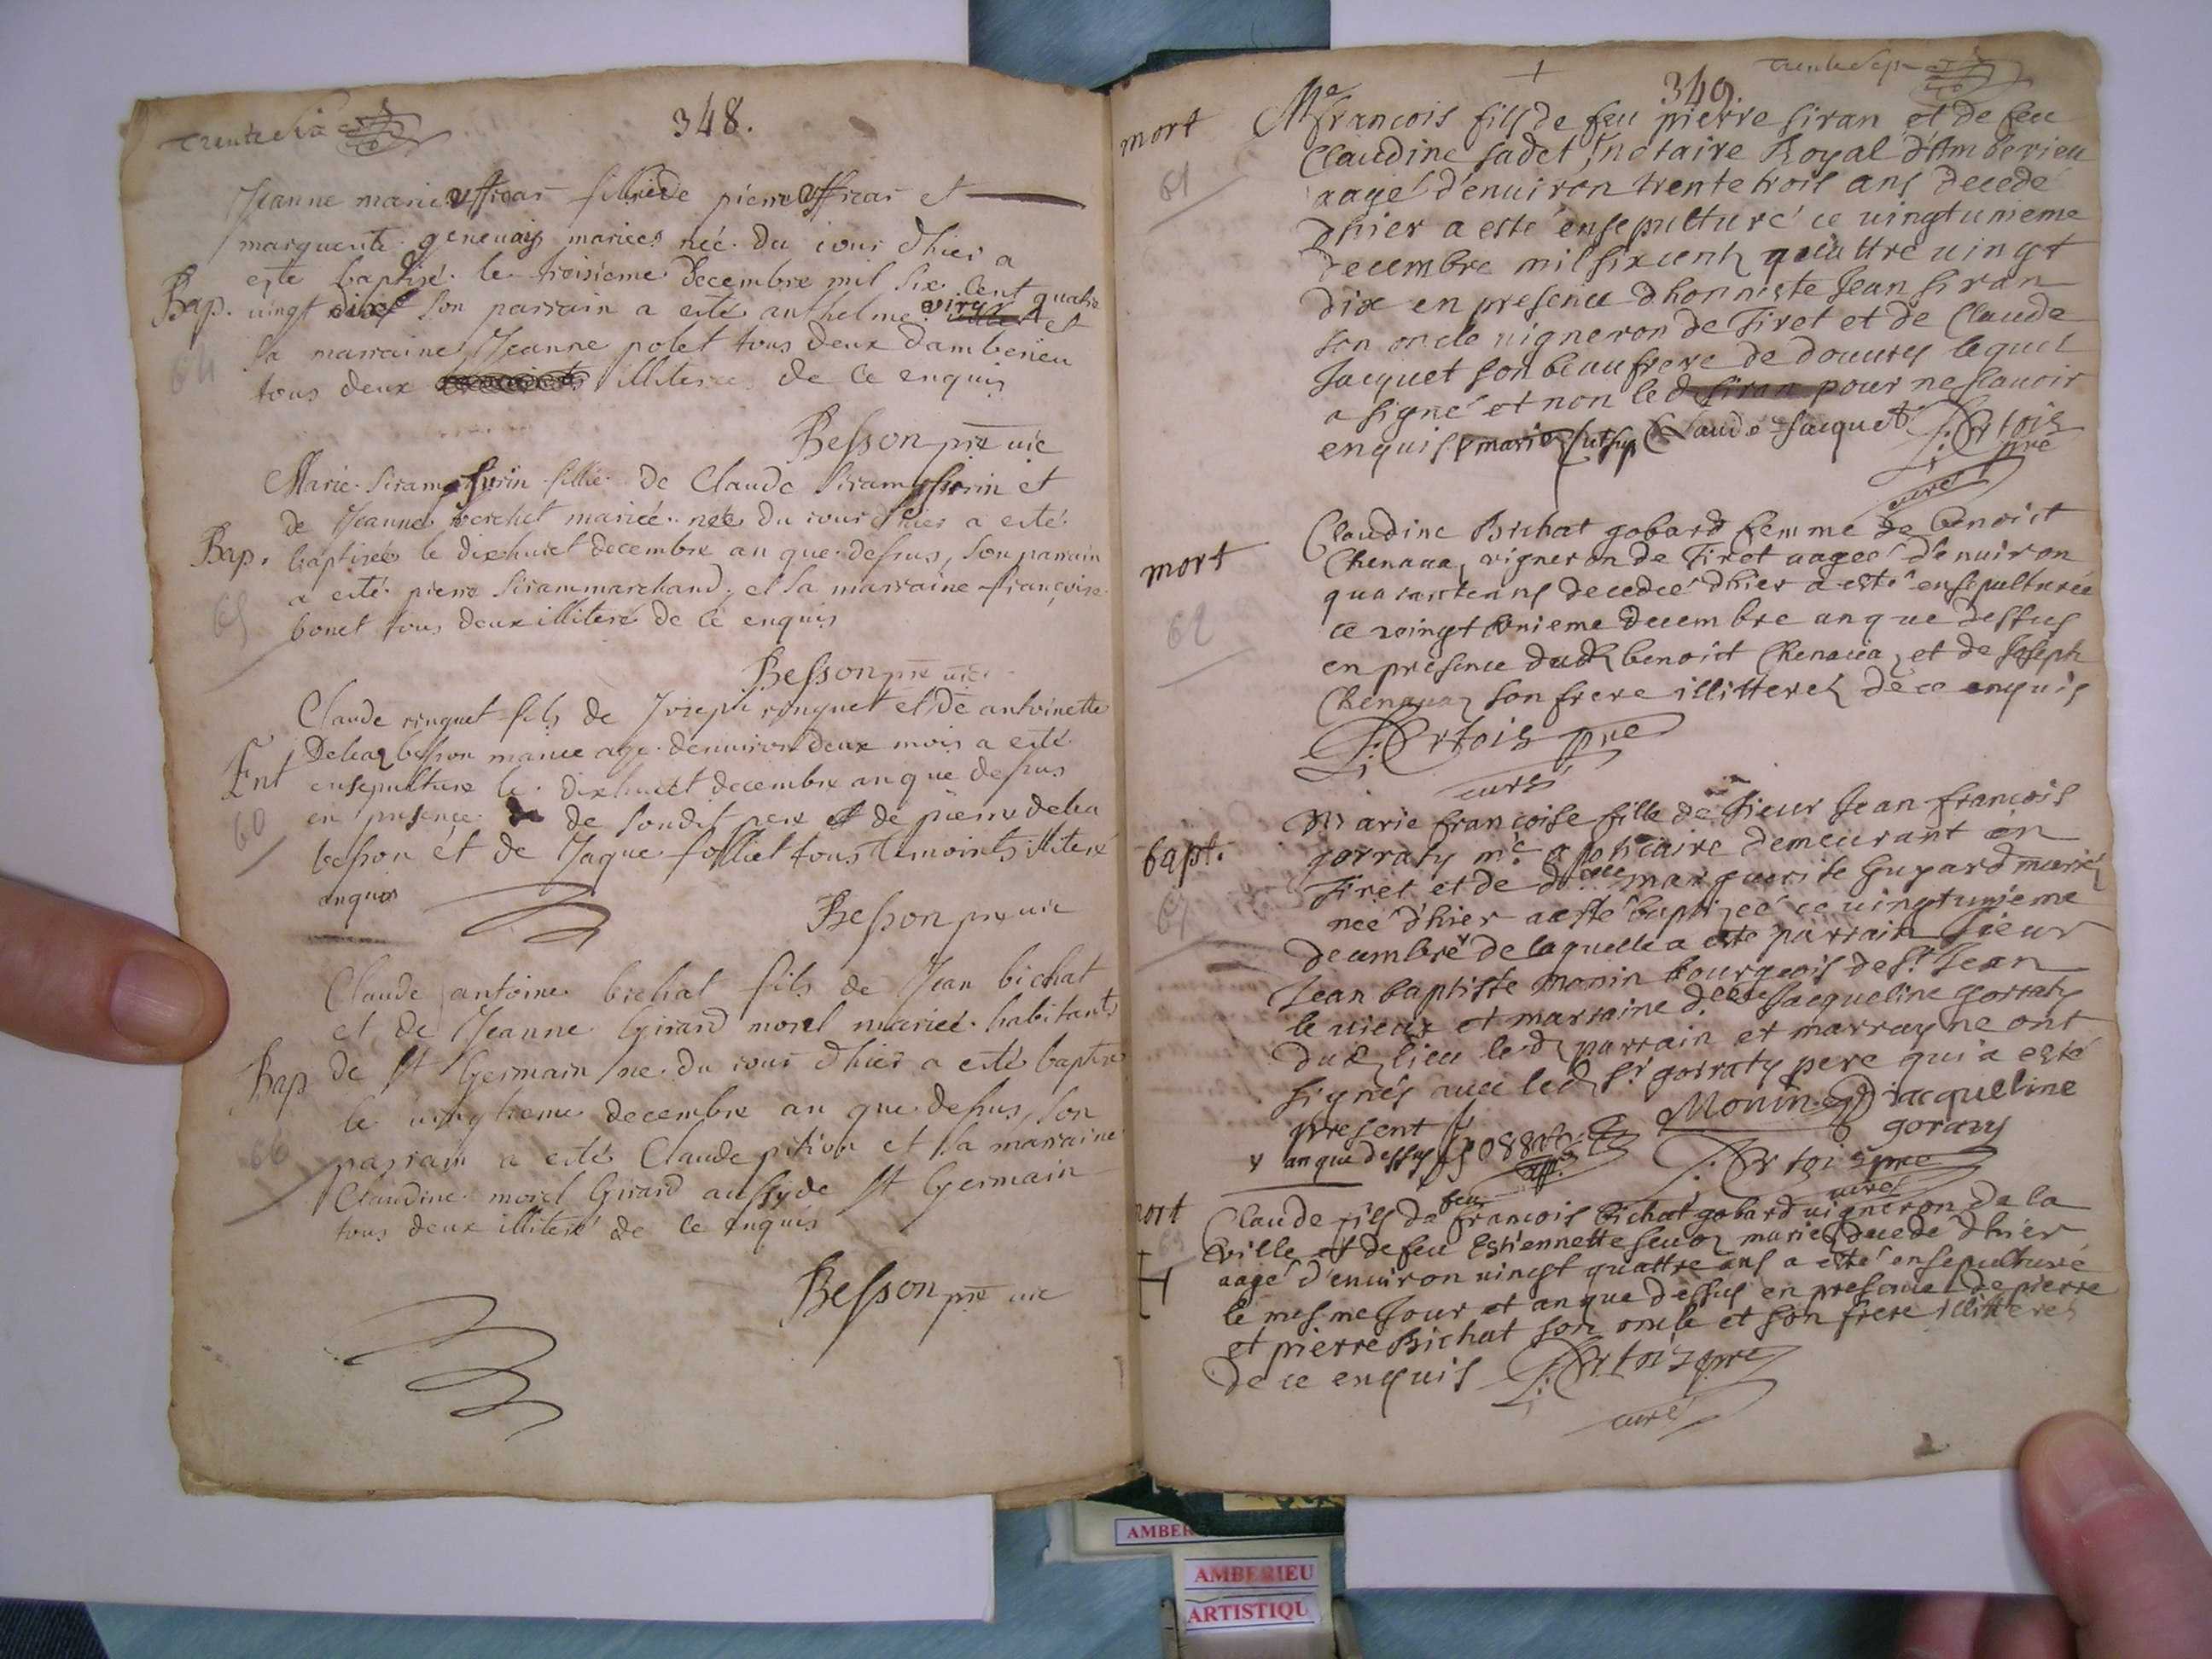 trente six
348.
Jeanne marie uffroar fillie de pierre uffroar et
marguerite genevays mariés née du iour dhier a
este baptisé le troisieme decembre mil six cent quatre
Bap. vingt dix son parrain a esté anthelme et
64
la marraine Jeanne polet tous deux damberieu
tous deux illiteres de ce enquis
Besson pre vic
Marie Siram Surin fillie de Claude Siram Surin et
de Jeanne verchet mariée née du iour dhier a esté
Bap. baptisée le dixhuict decembre an que dessus, son parrain
65
a esté pierre Siram marchand, et la marraine françoise
bonet tous deux illiteré de ce enquis
Besson pre vic
Claude ringuet fils de Joseph ringuet et de antoinette
Ent
60
Debeaz besson mariee age denuiron deux mois a esté
ensepulture le dixhuict decembre an que dessus
en presence de son dit pere et de pierre debea
besson et de Jaque folliet tous temoints illiteré
enquis
Besson pre vic
Claude antoine bichat fils de Jean bichat
et de Jeanne Girard morel mariée habitants
Bap de St Germain ne du iour dhier a esté baptise
66
le vingtieme decembre an que dessus, son
parrain a esté Claude pition et la marraine
Claudine morel Girard aussy de St Germain
tous deux illiteré de ce enquis
Besson pre vic
trente sept
349.
mort
61
Me francois fils de feu pierre siran et de feu
Claudine sadet notaire Royal d'Amberieu
aagé d'enuiron trente trois ans decedé
dhier a esté ensepulturé ce uingtunieme
decembre mil six cent quattre uingt
dix en presence dhonneste Jean siran
son oncle uigneron de Tiret et de Claude
Jacquet son beaufrere de douures lequel
a signé et non led siran pour ne scauoir
enquis Claude Jacquet
J: Ortois pre
curé
mort
62
Claudine Bichat gobard femme de benoict
Chenaua, vigneron de Tiret aagee d'enuiron
quarante ans decedeé dhier a esté ensepulturée
ce vingt unieme decembre an que dessus
en presence dud benoict Chenaua, et de Joseph
Chenaua son frere illitterez de ce enquis
J: Ortois pre
curé
bapt.
67
Marie francoise fille de sieur Jean francois
gorraty me apoticaire demeurant en
Tiret et de dlle marguerite Guyard mariez
neé d'hier a esté baptizeé ce uingtunieme
decembre de laquelle a esté parrain sieur
Jean baptiste Monin bourgeois de St Jean
le uieux et marraine dlle Jacqueline gorraty
dud lieu led parrain et marrayne ont
signés auec led sr gorraty pere qui a esté
present Monin Jacqueline
gorraty
v an que dessus
J: Ortois pre
curé
mort
63
Claude fils de feu francois bichat gobard uigneron de la
ville et de feu Estiennette mariez decede dhier
aagé d'enuiron uingt quattre ans a esté ensepulturé
le mesme Jour et an que dessus en presence de pierre
et pierre Bichat son oncle et son frere illitterez
de ce enquis J: Ortois pre
curé
AMBERIEU
ARTISTIQU